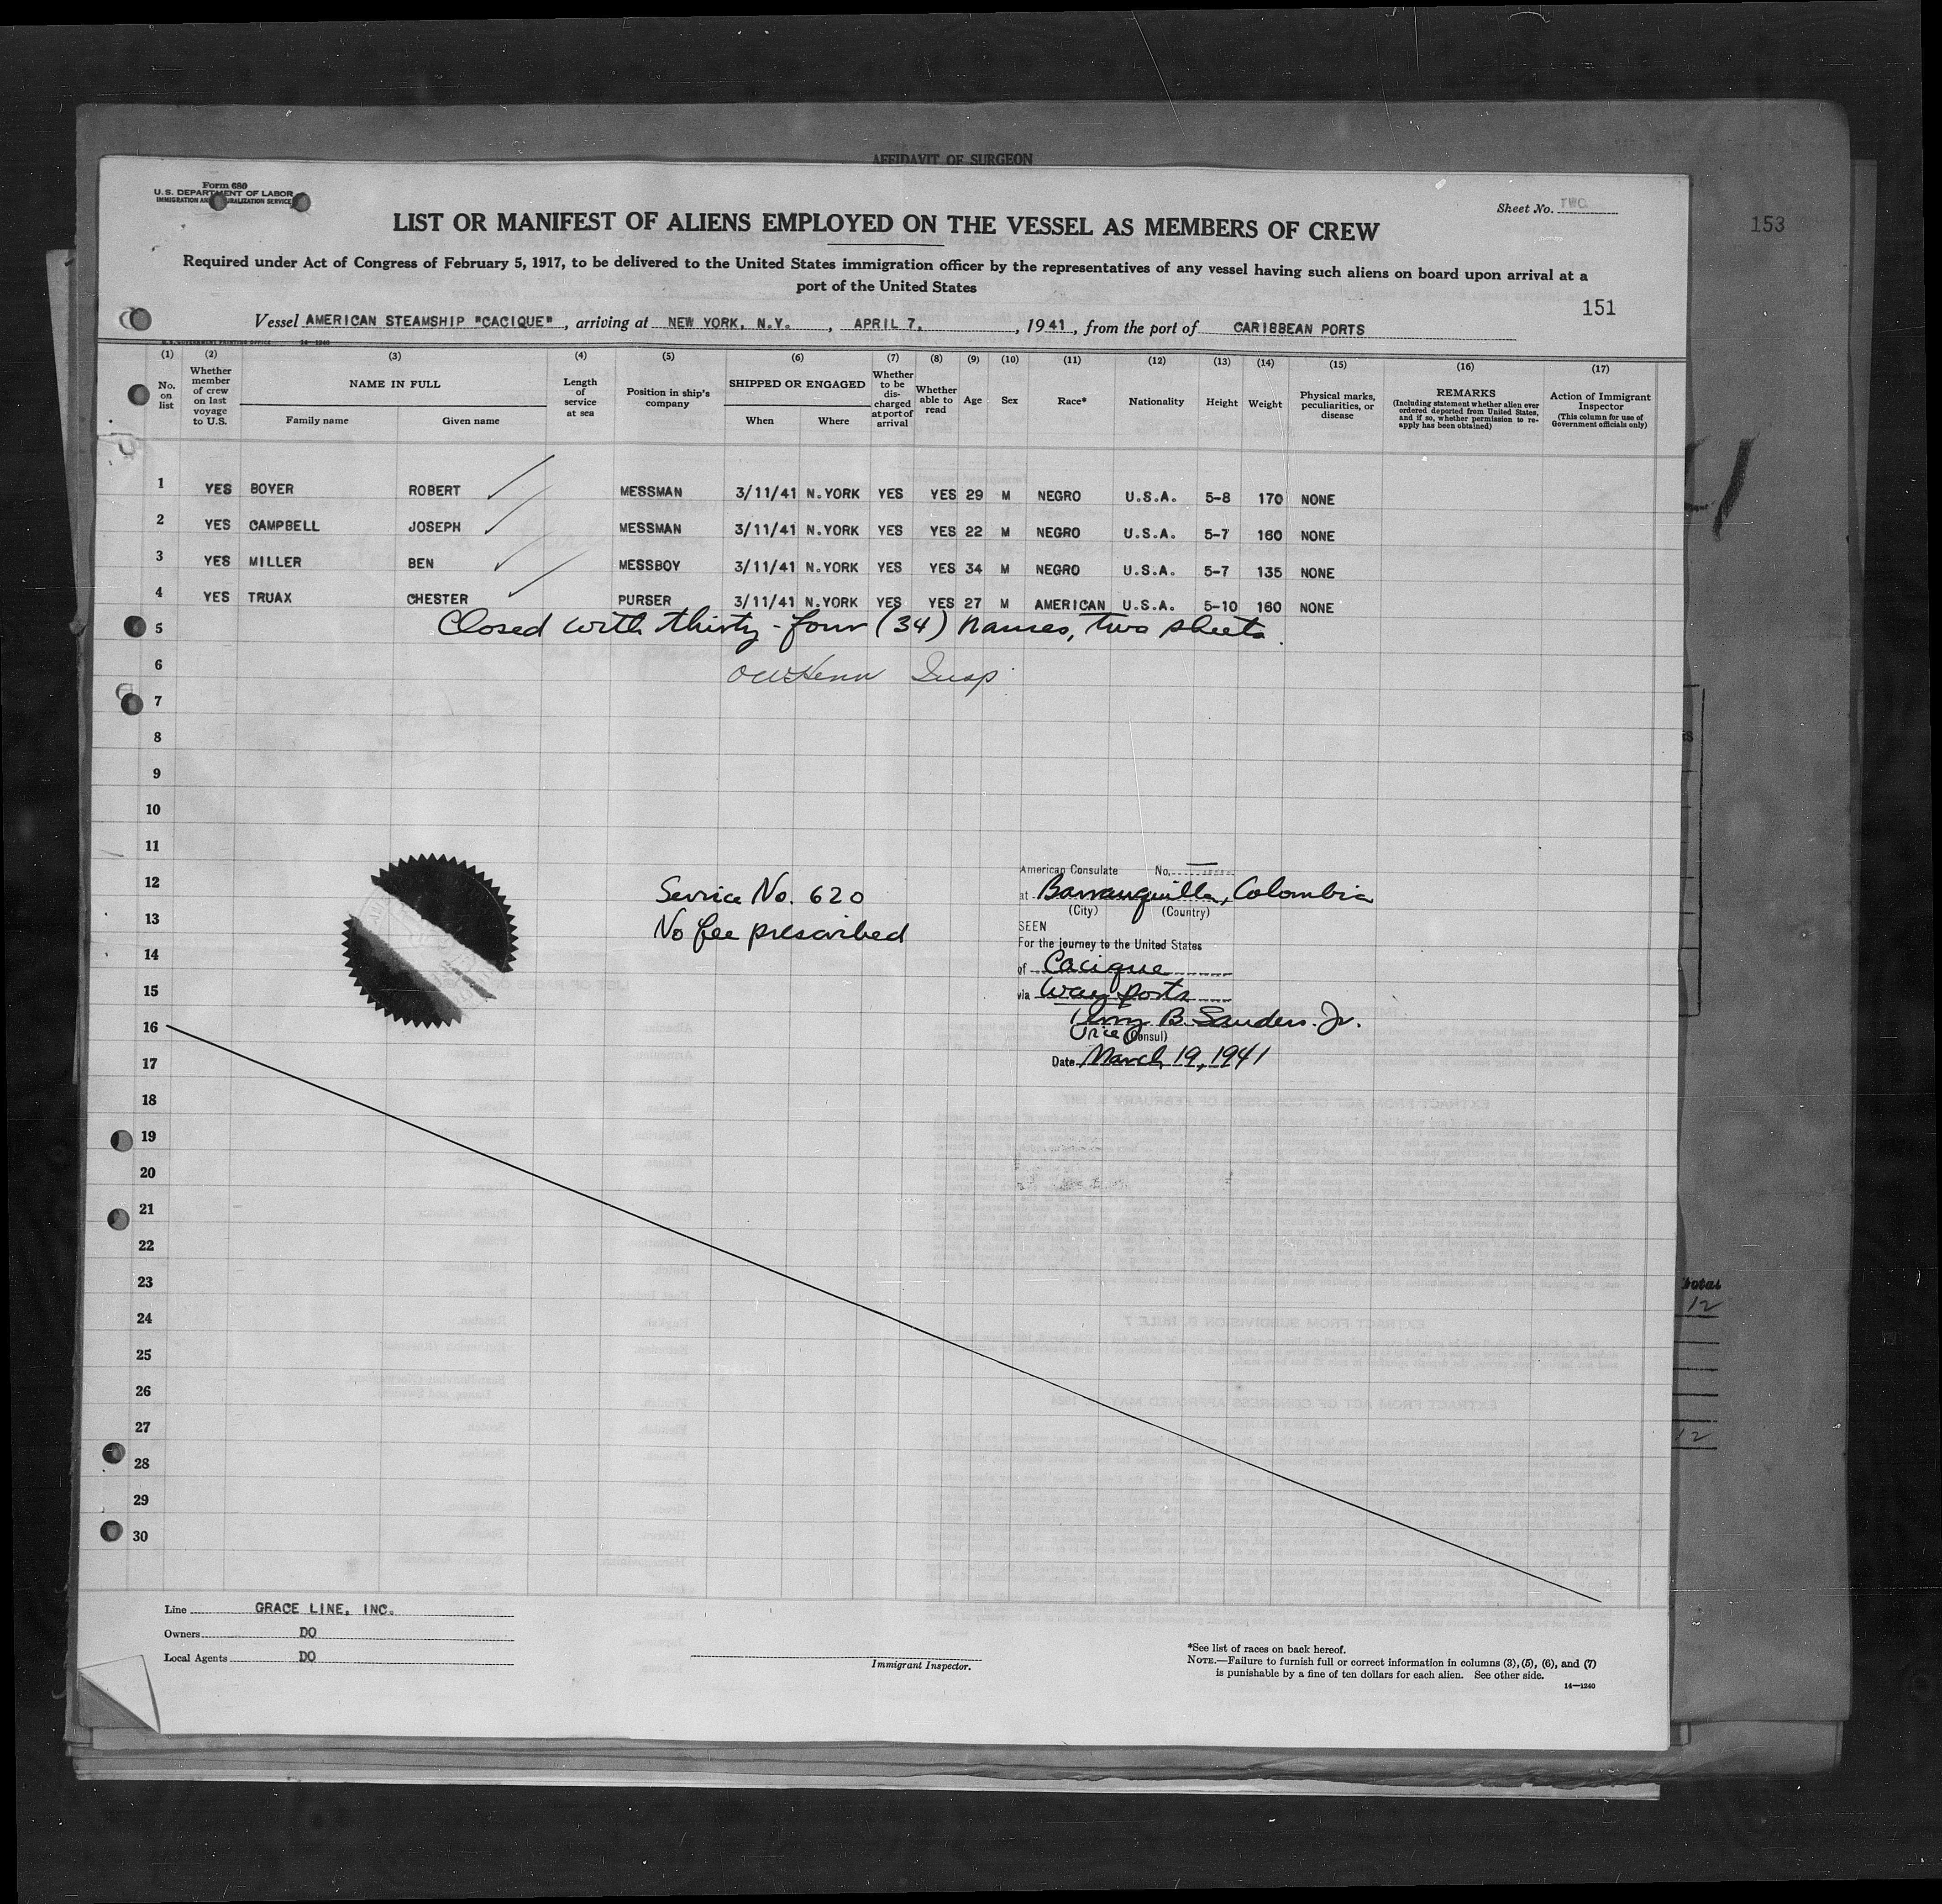 AFFIDAVIT OF SURGEON
Form 680
U.S. DEPARTMENT OF LABOR
IMMIGRATION AND NATURALIZATION SERVICE
Sheet No. TWO
153
LIST OR MANIFEST OF ALIENS EMPLOYED ON THE VESSEL AS MEMBERS OF CREW
Required under Act of Congress of February 5, 1917, to be delivered to the United States immigration officer by the representatives of any vessel having such aliens on board upon arrival at a
port of the United States
151
Vessel AMERICAN STEAMSHIP "CACIQUE", arriving at NEW YORK, N.Y., APRIL 7, 1941, from the port of CARIBBEAN PORTS
U.S. GOVERNMENT PRINTING OFFICE 14—1240
(1) (2) (3) (4) (5) (6) (7) (8) (9) (10) (11) (12) (13) (14) (15) (16) (17)
No. on list
Whether member of crew on last voyage to U.S.
NAME IN FULL
Family name Given name
Length of service at sea
Position in ship's company
SHIPPED OR ENGAGED
When Where
Whether to be discharged at port of arrival
Whether able to read
Age
Sex
Race*
Nationality
Height
Weight
Physical marks, peculiarities, or disease
REMARKS
(Including statement whether alien ever ordered deported from United States, and if so, whether permission to reapply has been obtained)
Action of Immigrant Inspector
(This column for use of Government officials only)
1 YES BOYER ROBERT MESSMAN 3/11/41 N.YORK YES YES 29 M NEGRO U.S.A. 5-8 170 NONE
2 YES CAMPBELL JOSEPH MESSMAN 3/11/41 N.YORK YES YES 22 M NEGRO U.S.A. 5-7 160 NONE
3 YES MILLER BEN MESSBOY 3/11/41 N.YORK YES YES 34 M NEGRO U.S.A. 5-7 135 NONE
4 YES TRUAX CHESTER PURSER 3/11/41 N.YORK YES YES 27 M AMERICAN U.S.A. 5-10 160 NONE
5 Closed with thirty-four (34) names, two sheets.
6 Insp
7
8
9
10
11
12
13
14
15
16
17
18
19
20
21
22
23
24
25
26
27
28
29
30
Service No. 620
No fee prescribed
American Consulate No.
at Barranquilla, Colombia
(City) (Country)
SEEN
For the journey to the United States
of Cacique
via Way ports
B. Sanders Jr.
Vice (Consul)
Date March 19, 1941
total
12
12
Line GRACE LINE, INC.
Owners DO
Local Agents DO
Immigrant Inspector.
*See list of races on back hereof.
NOTE.—Failure to furnish full or correct information in columns (3), (5), (6), and (7)
is punishable by a fine of ten dollars for each alien. See other side.
14—1240